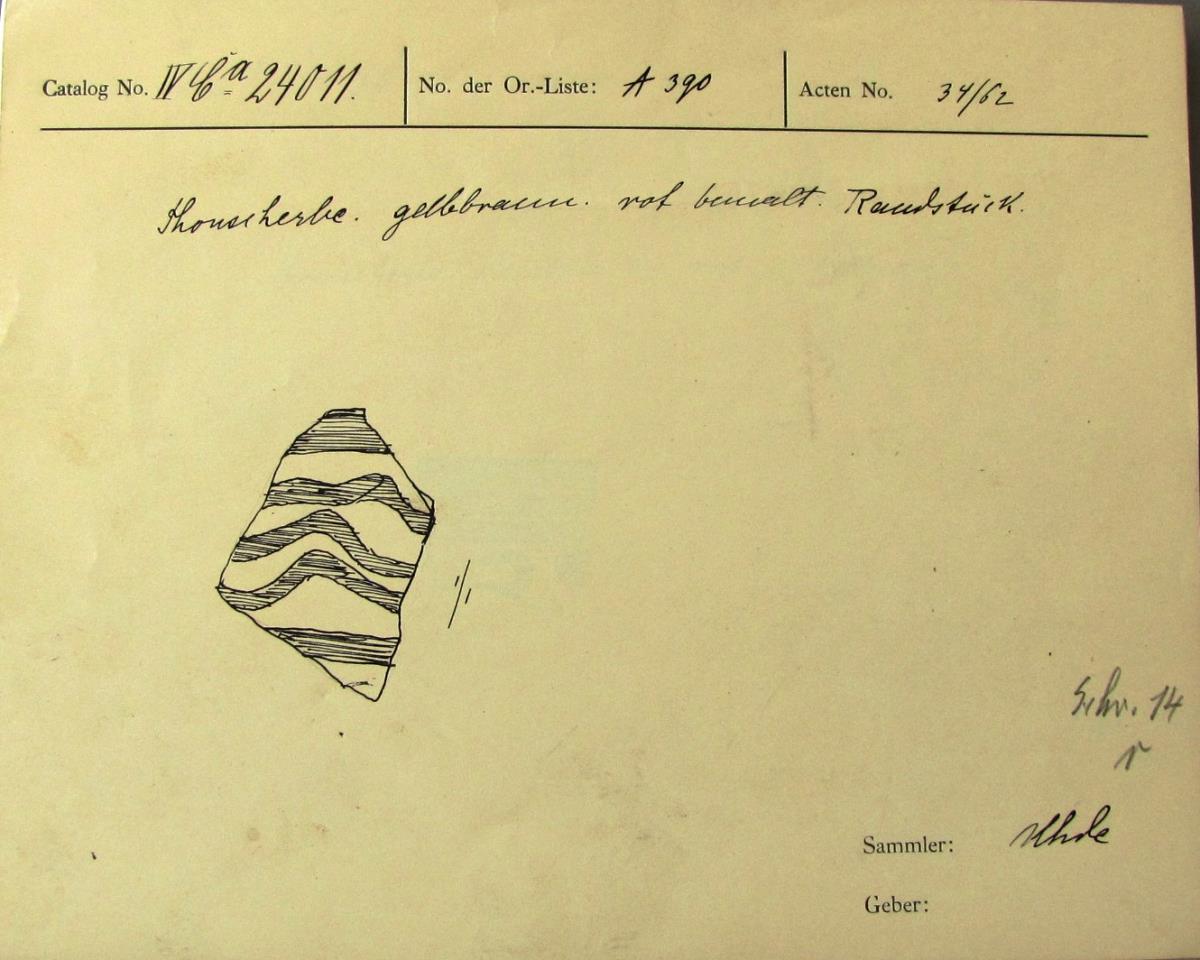 Catalog No. IV Ca 24011. No. der Or.-Liste: A 390 Acten No. 34/62
Thonscherbe. gelbbraun. rot bemalt. Randstück.
1/1
Schr. 14
r
Sammler: Uhde
Geber: